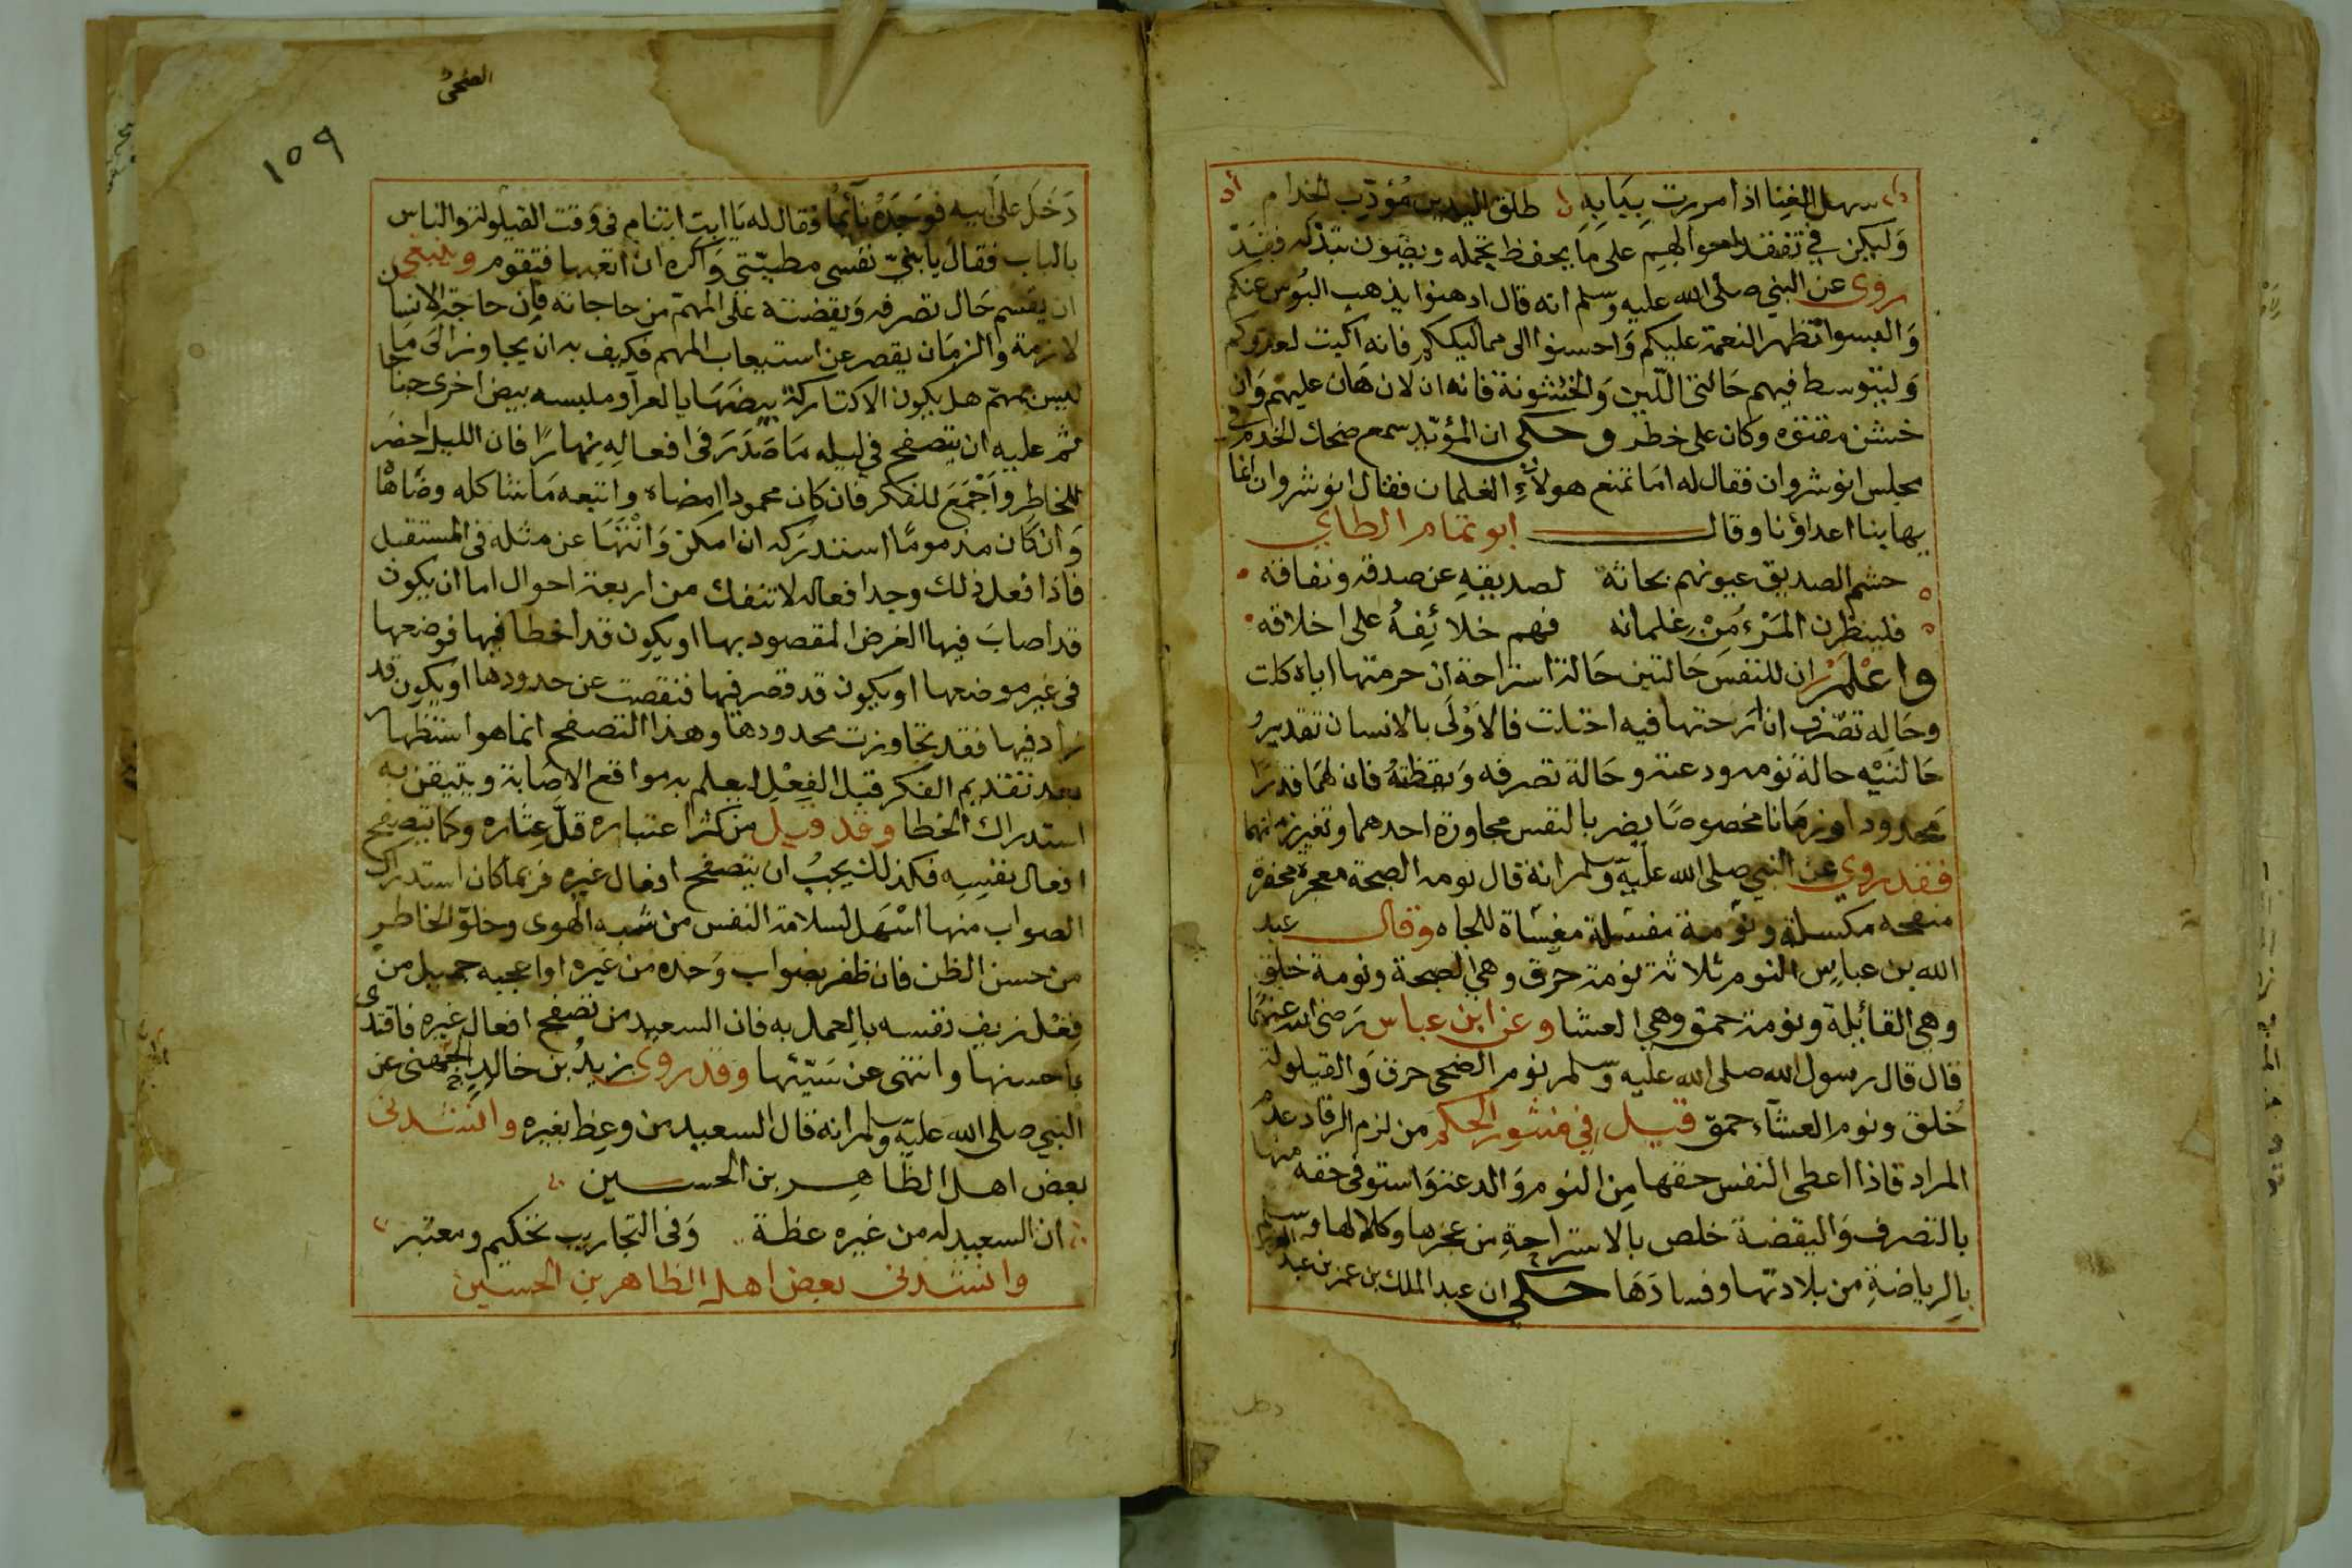 سهل الغنا اذا مررت ببابه طلق اليدين مؤدب الخدام
وَليكن في تفقد احوالهم على ما يحفظ تجمله ويصون تبذله فقد
روى عن النبي صلى الله عليه وسلم انه قال ادهنوا يذهب البُوس عنكم
وَالبسوا تظهر النعمة عليكم وَاحسنوا الى مماليككم فانه اكبت لعدوكم
وَليتوسط فيهم حَالتى اللّين وَالخشونة فانه ان لان هَان عليهم وَان
خشن مقتوه وكان على خطر وحكى ان المؤبذ سمع ضحك الخدم في
مجلس انوشروان فقال له امَا تمنع هولاءِ الغلمان فقال انوشروان انما
يهابنا اعداؤنا وقال ابو تمام الطاي
حشم الصديق عيونهم بحاثة لصديقهِ عن صدقه ونفاقه
فلينظرن المَرْء مِنْ غلمانه فهم خلائِفهُ على اخلاقه
واعْلمْ ان للنفس حَالتين حَالة استراحة ان حرمتها اياه كلت
وحَالة تصّرف ان ارَحتها فيه اختلت فالاَوْلَى بالانسان تقدير
حَالتيْه حالة نومه ودعته وحَالة تصرفه وَيقظتهُ فان لهمَا قدرًا
محدودا وزمَانا مخصوصًا يضر بالنفس مجاوزة احدهما وتغير زمانهما
فقد روي عن النبي صلى الله عليه وسلم انه قال نومة الصبحة معجزة
منفخه مكسلة ونوْمة مفشلة منسَاة للجاه وقال عبد
الله بن عباس النوم ثلاثة نومة خرق وهي الصبحة ونومة خلق
وهي القائلة ونومة حمق وهي العشا وعن ابن عباس رَضى الله عنهمَا
قال قال رسول الله صلى الله عليه وسلم نوم الضحى خرق وَالقيلولة
خُلق ونوم العشآء حمق قيل في منثور الحكم مَن لزم الرقاد عدم
المراد فاذا اعطى النفس حقها مِن النوم وَالدعة وَاستوفى حقه منها
بالتصرف وَاليقضة خلص بالاستراحةِ من عجزها وكلالها وسلم
بِالرياضةِ من بلادتها وفسادَهَا حكى ان عبد الملك بن عمر بن عبد العزيز
الضحى
١٥٩
دَخَلَ على اَبيه فوَجَدَهُ نآئمًا فقال له يَا ابت اتنام فى وَقت القيلولة والناس
بالباب فقال يا بنيّ نفسى مطيّتي وَاكره ان اتعبها فتقوم وينبغي
ان يقسم حَال تصرفه وَيقضته على المهم من حاجاته فإن حاجة الانسان
لازمة والزمَان يقصر عن استيعاب المهم فكيف به ان يجاوز الىَ مَا
ليس بمهمّ هل يكون الا كتاركة بيضَهَا بالعرآ وملبسه بيض اخرى جناحا
ثم عليه ان يتصفح في ليله مَا صَدَرَ فى افعالِهِ نهارًا فان الليل احضَر
للخاطر واَجْمَعَ للفكر فان كان محمودا امضاه واتبعه مَا شاكله وضَاهَا
وَان كَان مذمومًا استدرَكه ان امكن وَانْتهَا عن مثله فى المستقبل
فاذا فعل ذلك وجد افعاله لا تنفك من اربعة احوال اما ان يكون
قد اصابَ فيها الغرض المقصود بها او يكون قد اخطا فيها فوضعها
فى غير موضعها او يكون قد قصر فيها فنقصت عن حدودها او يكون قد
زاد فيها فقد تجاوزت محدودهَا وهذا التصفح انما هو استظهار
بعد تقديم الفكر قبل الفِعْلِ ليعلم به مواقع الاصَابة ويتيقن به
استدراك الخطا وقد قيل من كثر اعتباره قلّ عِثاره وكما تيصفح
افعال نفسِه فكذلك يجبُ ان يتصفح افعال غيره فربما كان استدراك
الصواب منها اسْهَل لسلامة النفس من شبه الهوى وخلوّ الخاطر
من حسن الظن فان ظفر بضواب وَحده من غيره او اعجبه جميل من
فِعْل زيف نفسه بالعمل به فان السعيد من تصفح افعال غيره فاقتدى
باحسنها وانتهى عن سَيّئها وقد روى زيدُ بن خالد الجهنى عن
النبي صلى الله عليه وسلم انه قال السعيد من وعظ بغيره وانشدنى
بعض اهل الظاهر بن الحسين
ان السعيد له من غيره عظة وَفى التجاريب تحكيم ومعتبر
وانشدنى بعض اهل الظاهر بن الحسين